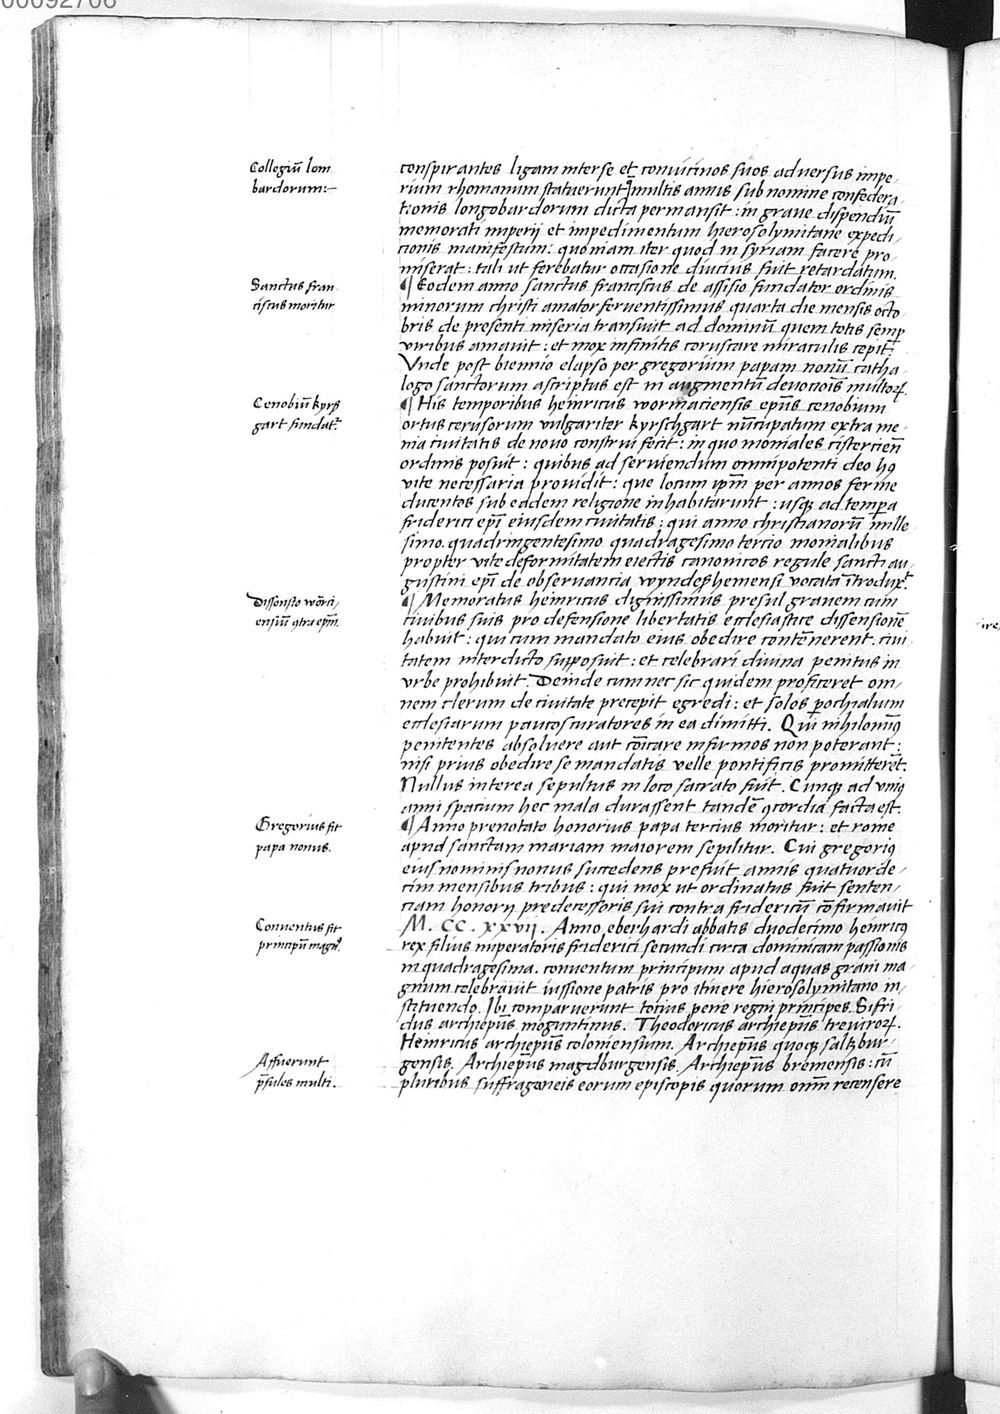 00092706
Collegiū lom
bardorum:~
conspirantes ligam inter se et conuicinos suos aduersus impe-
rium rhomanum statuerunt ꝗ multis annis sub nomine confedera-
tionis longobardorum dicta permansit: in graue dispendiū
memorati imperij et impedimentum hierosolymitane expedi-
cionis manifestum: quoniam iter quod in syriam facere pro-
miserat: tali ut ferebatur occasione diucius fuit retardatum.
Sanctus fran-
ciscus moritur
¶ Eodem anno sanctus franciscus de assisio fundator ordinis
minorum christi amator feruentissimus quarta die mensis octo-
bris de presenti miseria transiuit ad dominū quem totis semꝑ
viribus amauit: et mox infinitis coruscare miraculis cepit.
Vnde post biennio elapso per gregorium papam nonū catha-
logo sanctorum ascriptus est in augmentū deuocioīs multoꝝ.
Cenobiū kyrs
gart fundat᷑
¶ His temporibus heinricus wormaciensis ep̄us cenobium
ortus ceruorum vulgariter kyrschgart nūcupatum extra me-
nia ciuitatis de nouo construi fecit: in quo moniales cisterciēn
ordinis posuit: quibus ad seruiendum omnipotenti deo hꝰ
vite necessaria prouidit: que locum ip̄m per annos ferme
ducentos sub eadem religione inhabitarunt: usqꝫ ad tempora
friderici ep̄i eiusdem ciuitatis: qui anno christianorū mille-
simo quadringentesimo quadragesimo tercio monialibus
propter vite deformitatem eiectis canonicos regule sancti au-
gustini ep̄i de obseruancia wyndeshemensi vocata ītroduxᷓ
Dissensio wōrci-
ensiū ꝯtra ep̄m.
¶ Memoratus heinricus dignissimus presul grauem cum
ciuibus suis pro defensione libertatis ecclesiastice dissensionē
habuit: qui cum mandato eius obedire contēnerent. ciui-
tatem interdicto supposuit: et celebrari diuina penitus in
vrbe prohibuit. Deinde cum nec sic quidem proficeret om-
nem clerum de ciuitate precepit egredi: et solos ꝑochialium
ecclesiarum paucos curatores in ea dimitti. Qui nihilominꝰ
penitentes absoluere aut cōicare infirmos non poterant:
nisi prius obedire se mandatis velle pontificis promitterēt.
Nullus interea sepultus in loco sacrato fuit. Cunqꝫ ad vniꝰ
anni spacium hec mala durassent tandē ꝯcordia facta est.
Gregorius fit
papa nonus.
¶ Anno prenotato honorius papa tercius moritur: et rome
apud sanctam mariam maiorem sepilitur. Cui gregoriꝰ
eius nominis nonus succedens prefuit annis quatuorde-
cim mensibus tribus: qui mox ut ordinatus fuit senten-
ciam honorij predecessoris sui contra fridericū cōfirmauit
Conuentus fit
principū magnꝰ
M. CC. xxvij. Anno eberhardi abbatis duodecimo heinricꝰ
rex filius imperatoris friderici secundi circa dominicam passionis
in quadragesima. conuentum principum apud aquas grani ma-
gnum celebrauit iussione patris pro itinere hierosolymitano in-
stituendo. Ibi comparuerunt tocius pene regni principes. Sifri-
dus archiep̄us moguntinus. Theodoricus archiep̄us treuiroꝝ.
Heinricus archiep̄us coloniensium. Archiep̄us quoqꝫ saltzbur-
Affuerunt
p̄sules multi.
gensis. Archiep̄us magdburgensis. Archiep̄us bremensis: cū
pluribus suffraganeis eorum episcopis quorum om̄ia recensere